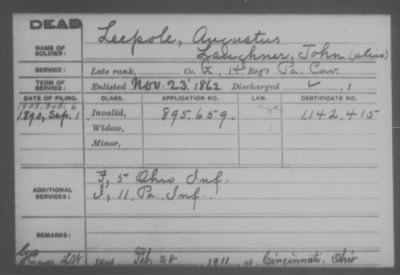 DEAD
NAME OF SOLDIER: Leepole, Augustus
Laughner, John (alias)
SERVICE: Late rank, Co. F, 14 Reg't Pa. Cav.
TERM OF SERVICE: Enlisted Nov. 23, 1862 Discharged ✓, 1
DATE OF FILING. CLASS. APPLICATION NO. LAW. CERTIFICATE NO.
1890, Sep. 1 Invalid, 895.659. 1142.415
Widow,
Minor,
ADDITIONAL SERVICES: F, 5 Ohio Inf.
I, 11 Pa. Inf.
REMARKS:
Died Feb. 28 1911, at Cincinnati, Ohio